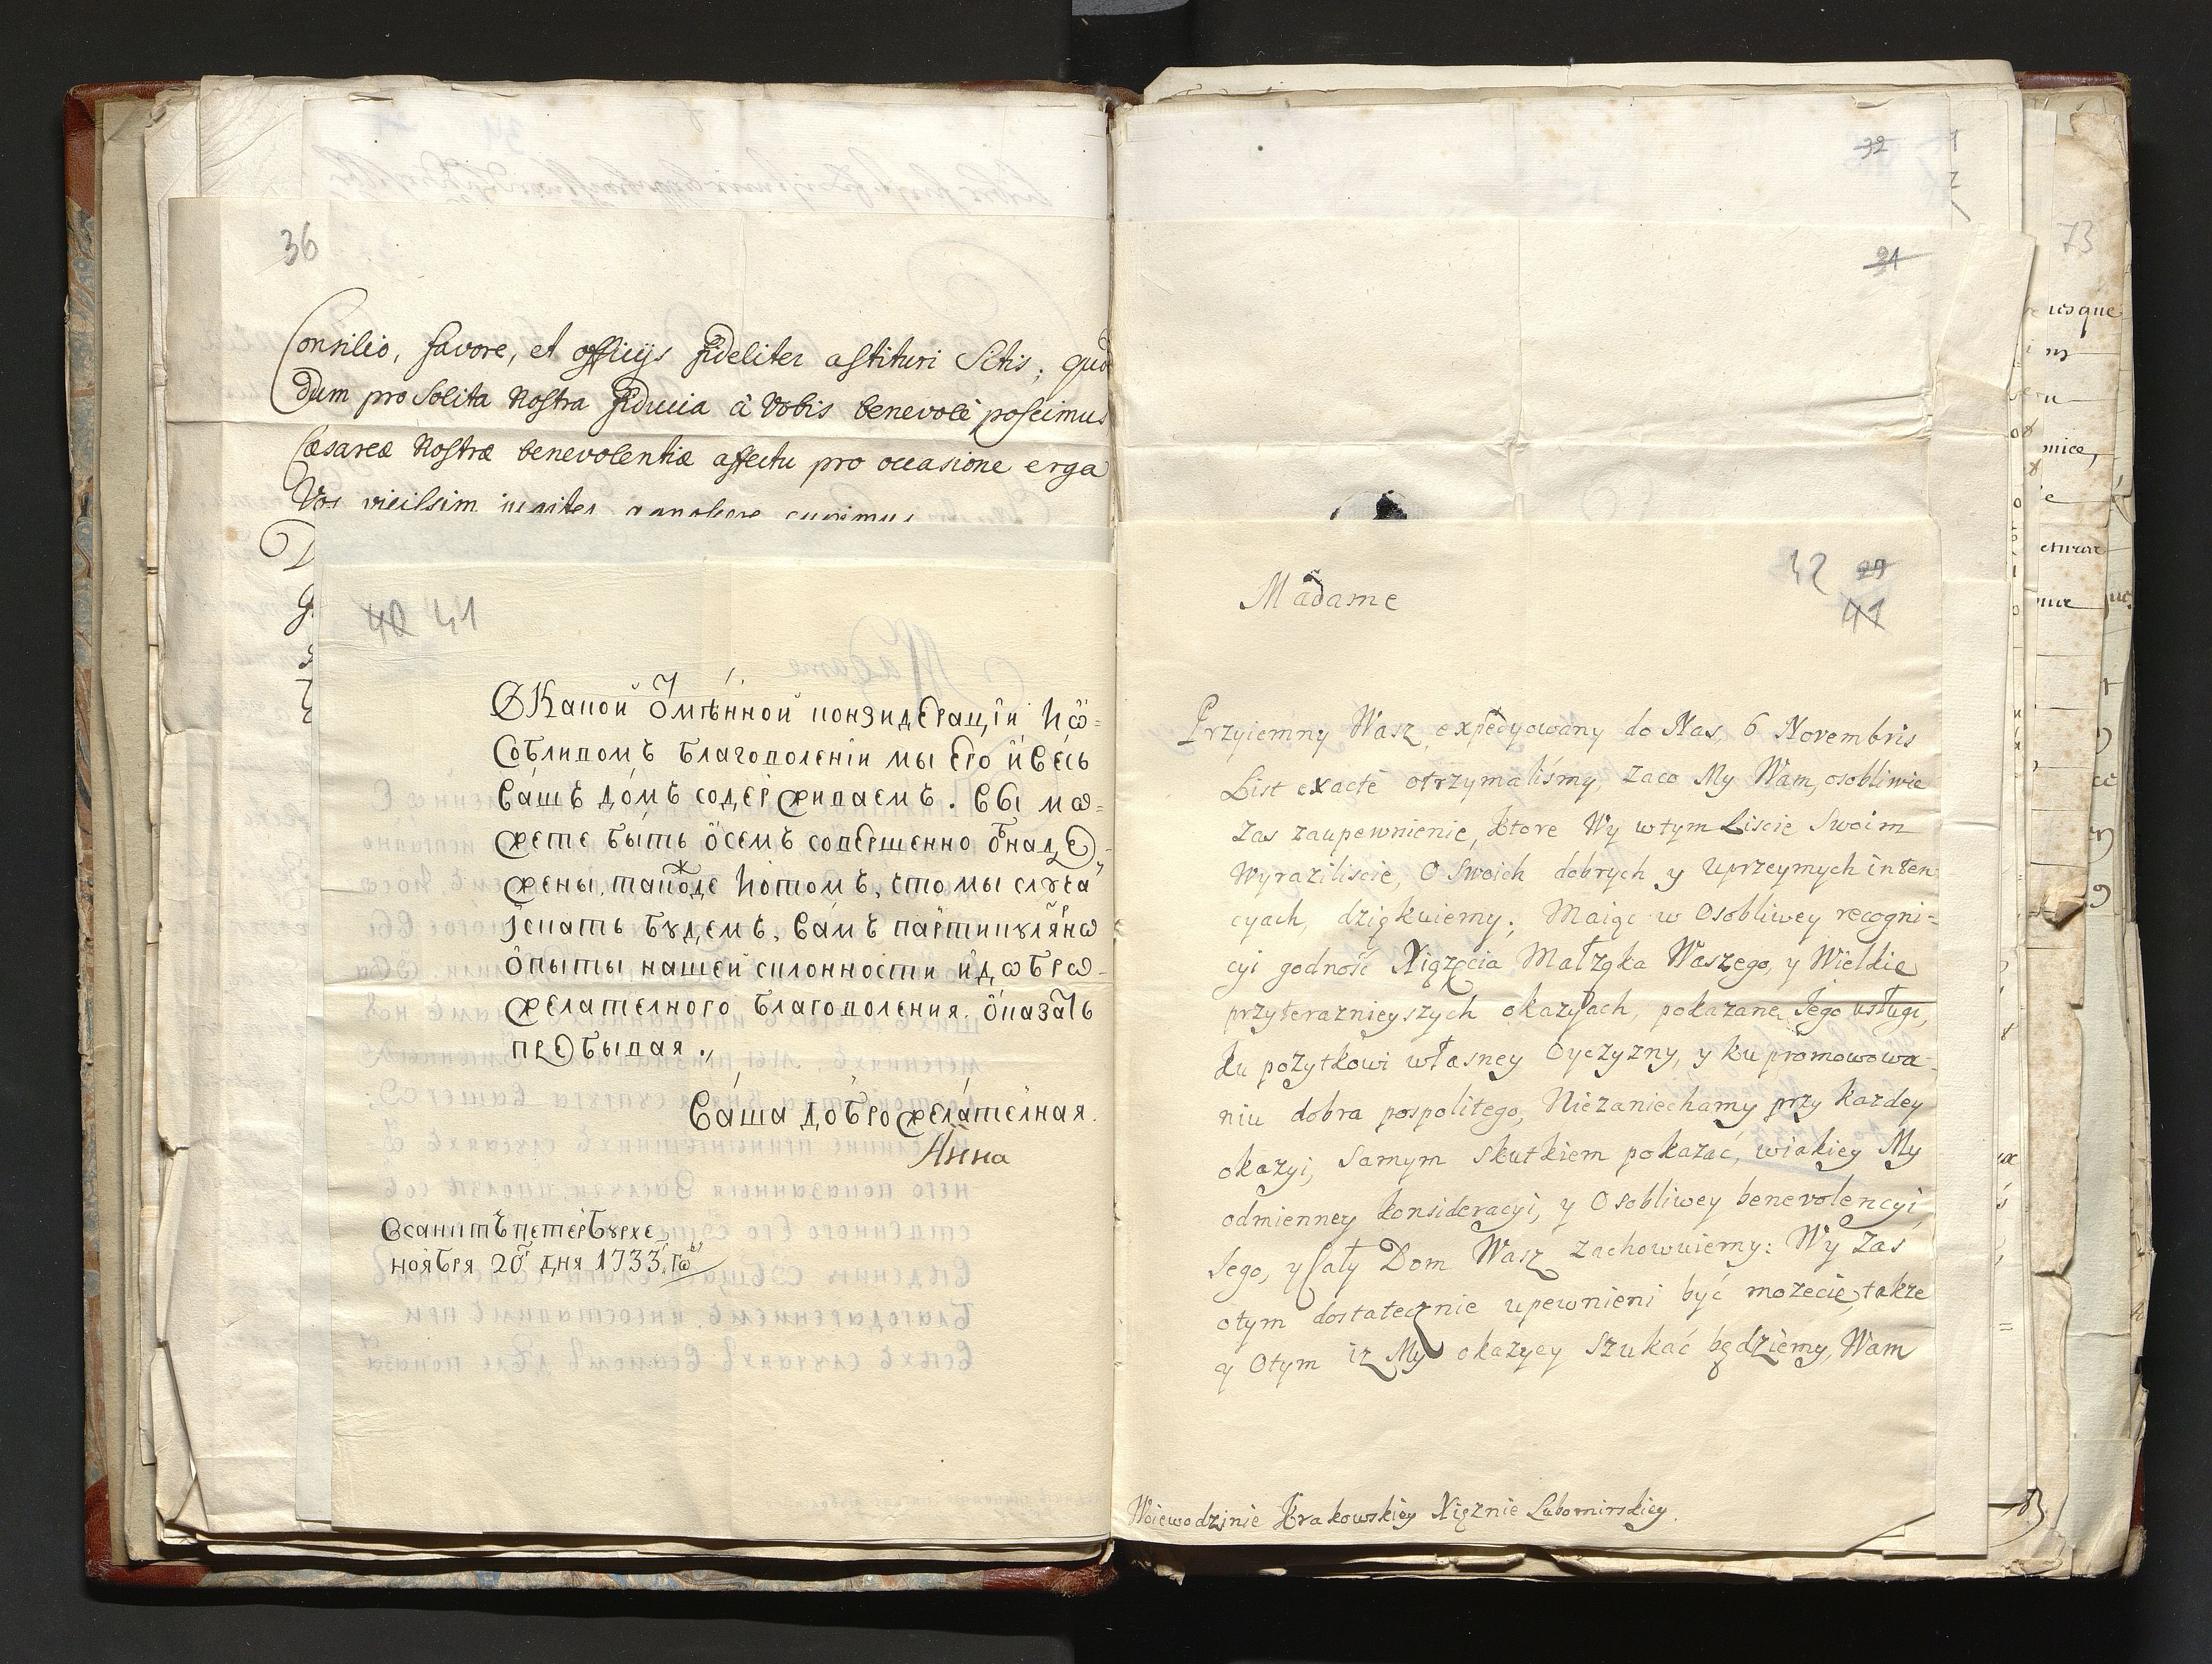 36
Consilio, favore, et officijs fideliter astituri Sitis; quod
dum pro Solita Nostra fiducia à Vobis benevolè poscimus
Cæsareæ Nostræ benevolentiæ affectu pro occasione erga
Vos vicissim
40 41
Ѡкакой ѿмѣнной конзидерацїи и ѡ=
собливомъ благоволенїи мы его и весь
вашъ домъ содерживаемъ. вы мо=
жете быть ѡсемъ совершенно ѻнаде-
жены, такожде и ѻтомъ, что мы случа
искать будемъ, вамъ партикулярно
ѻпыты нашей склонности и добро-
желателного благоволения ѻказать
пребывая.,
Ваша доброжелателная.
Анна
Всанктъпетербурхе
ноября 20г дня 1733г гѡ
32
31
Madame
42 29
41
Przyiemny Wasz, expedyowany do Nas 6 Novembris
List exacte otrzymaliśmy, zaco My Wam, osobliwie
zas zaupewnienie, ktore Wy wtym Liscie Swoim
Wyraziliscie, O Swoich dobrych y Uprzeymych inten
cyach, dziękuiemy; Maiąc w Osobliwey recogni=
cyi godność Xiążęcia Małżąka Waszego, y Wielkie
przyteraznieyszych okazyach, pokazane Jego usługi,
ku pożytkowi własney Oyczyzny, y ku promowowa-
niu dobra pospolitego, Niezaniechamy przy każdey
okazyi, Samym skutkiem pokazać, wiakiey My
odmienney konsideracyi, y Osobliwey benevolencyi,
Jego, y Cały Dom Wasz zachowuiemy: Wy zas
otym dostatecznie upewnieni być możecie, także
y Otym iz My okazyey Szukać będziemy, Wam
Woiewodzinie Krakowskiey Xiężnie Lubomirskiey.
73